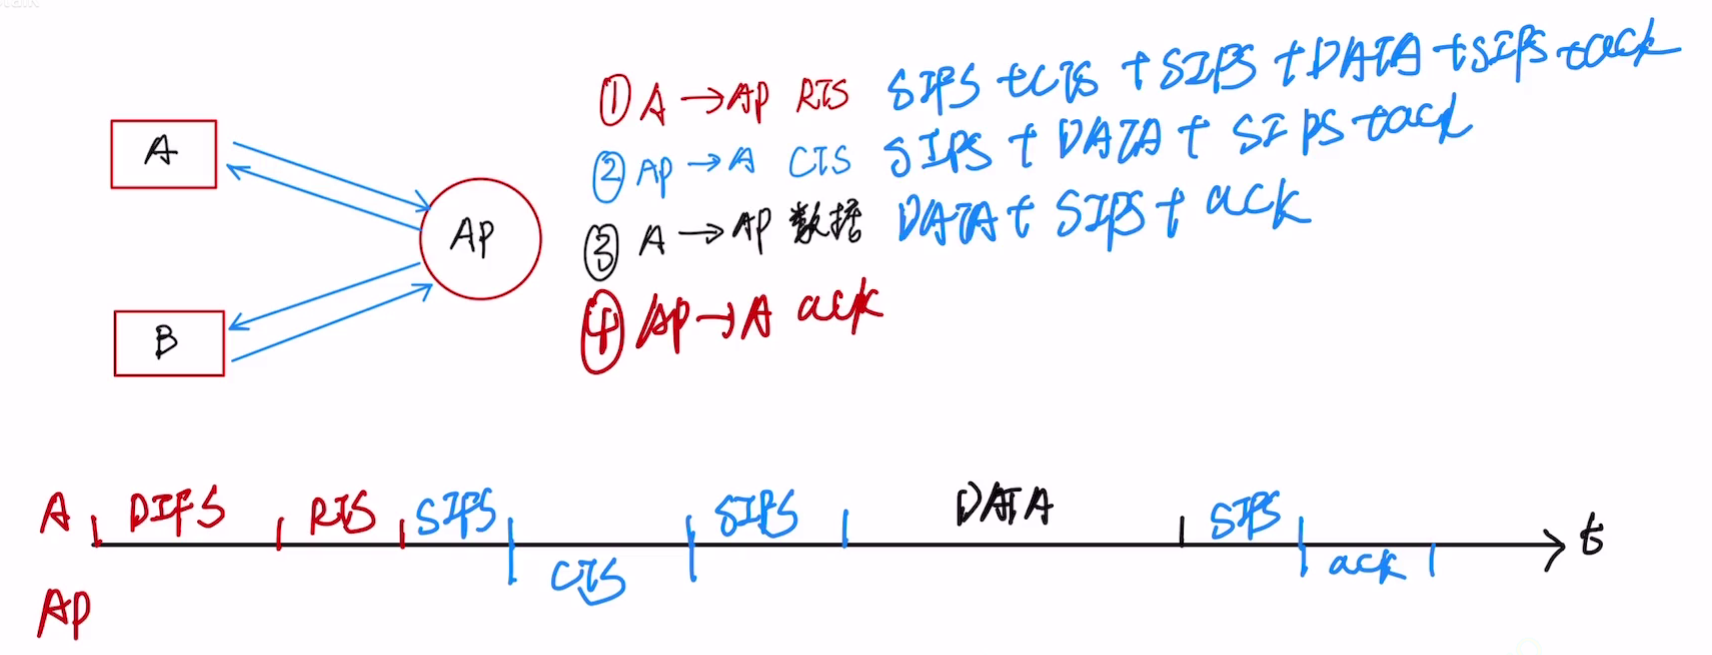 ① A → AP RTS SIFS + CTS + SIFS + DATA + SIFS + ack
② AP → A CTS SIFS + DATA + SIFS + ack
③ A → AP 数据 DATA + SIFS + ack
④ AP → A ack
A
AP
B
A DIFS RTS SIFS SIFS DATA SIFS t
CTS ack
AP